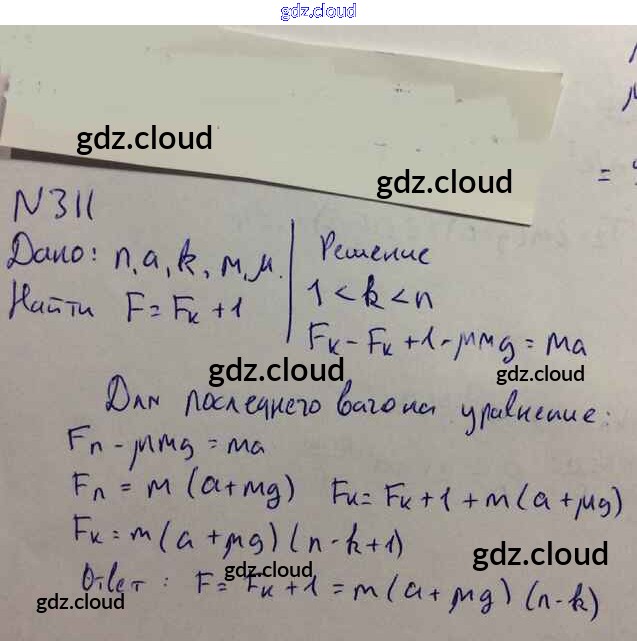 gdz.cloud
gdz.cloud
gdz.cloud
=
N311
Дано: n, a, k, м, μ.
Найти F = Fк + 1
Решение
1 < k < n
Fк - Fк + 1 - μмg = ma
gdz.cloud
gdz.cloud
Для последнего вагона уравнение:
Fn - μмg = ma
Fn = м (a + мg) Fк = Fк + 1 + м (a + μg)
Fк = м (a + μg) (n - k + 1)
gdz.cloud
Ответ: F = Fк + 1 = м (a + μg) (n - k)
gdz.cloud
gdz.cloud